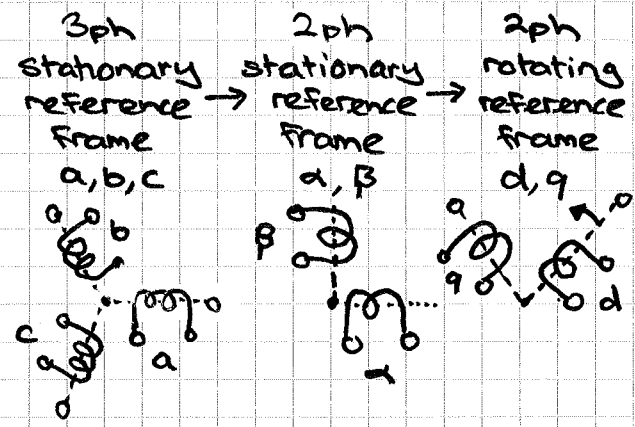 3ph
stationary
reference
frame
a, b, c
→
2ph
stationary
reference
frame
α, β
→
2ph
rotating
reference
frame
d, q
b
c
a
β
α
a
q
d